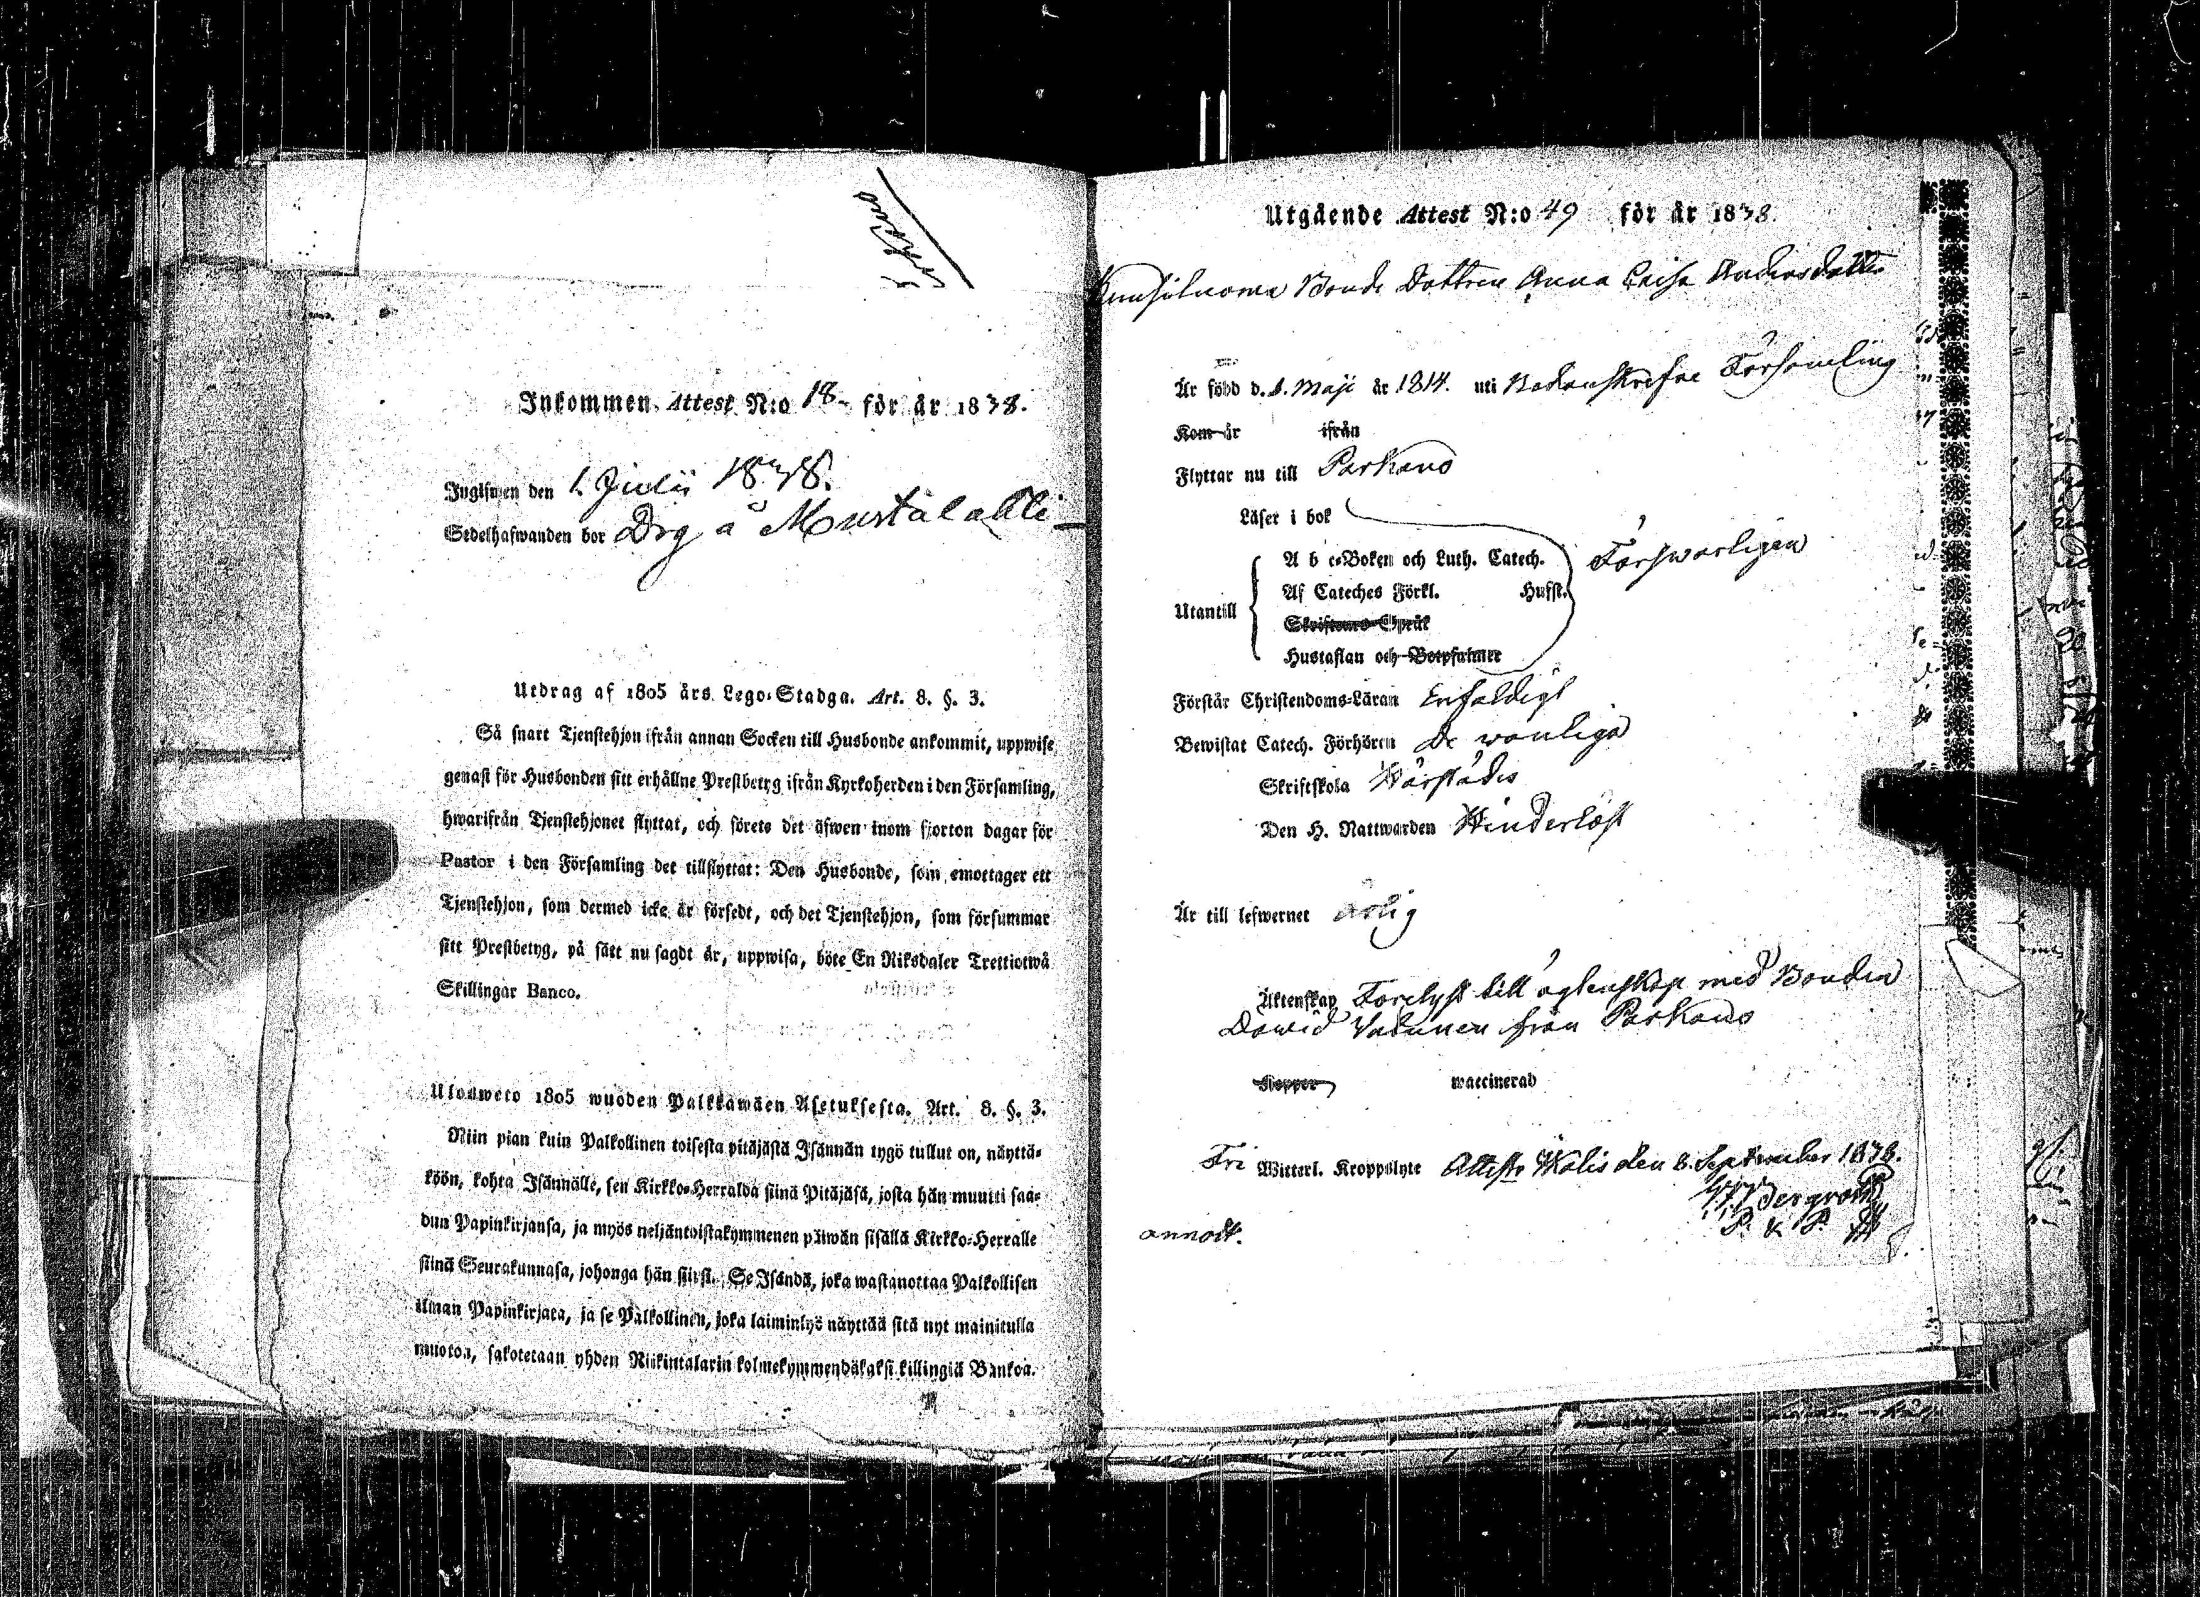 Inkommen Attest N:o 18 för år 1838.
Inglswen den 1. Julii 1838.
Sedelhafwanden bor Drg å Mustalahti
Utdrag af 1805 års Lego-Stadga. Art. 8. §. 3.
Så snart Tjenstehjon ifrån annan Socken till Husbonde ankommit, uppwise
genast för Husbonden sitt erhållne Prestbetyg ifrån Kyrkoherden i den Församling,
hwarifrån Tjenstehjonet flyttat, och förete det äfwen inom fjorton dagar för
Pastor i den Församling det tillflyttat: Den Husbonde, som emottager ett
Tjenstehjon, som dermed icke är försedt, och det Tjenstehjon, som försummar
sitt Prestbetyg, på sätt nu sagdt är, uppwisa, böte En Riksdaler Trettiotwå
Skillingar Banco.
Ulosweto 1805 wuoden Palkkawäen Asetuksesta. Art. 8. §. 3.
Niin pian kuin Palkollinen toisesta pitäjästä Isännän tygö tullut on, näyttä-
köön, kohta Isännälle, sen Kirkko-Herralda siinä Pitäjäsä, josta hän muutti saa-
dun Papinkirjansa, ja myös neljäntoistakymmenen päiwän sisällä Kirkko-Herralle
siinä Seurakunnasa, johonga hän siirsi. Se Isändä, joka wastanottaa Palkollisen
ilman Papinkirjata, ja se Palkollinen, joka laiminlyö näyttää sitä nyt mainitulla
muotoa, sakotetaan yhden Riikintalarin kolmekymmendäkaksi killingiä Bankoa.
Utgående Attest N:o 49 för år 1838.
Bonde Dottren Anna Caisa Andersdotter
Är född d. 1. Maji år 1814. uti Nedanskrefne Församling
Kom år ifrån
Flyttar nu till Parkano
Läser i bok
A b c-Boken och Luth. Catech. Förswarligen
Af Cateches Förkl. Hufst.
Utantill
Skriftenes Språk
Hustaflan och Botpsalmer
Förstår Christendoms-Läran Enfaldigt
Bewistat Catech. Förhören De wanliga
Skriftskola
Den H. Nattwarden Hinderlöst
Är till lefwernet ärlig
Äktenskap Förelyst till ägtenskap med Bonden
Dawid från Parkano
Koppor waccinerad
Fri Witterl. Kroppslyte Attest. den 8. September 1838.